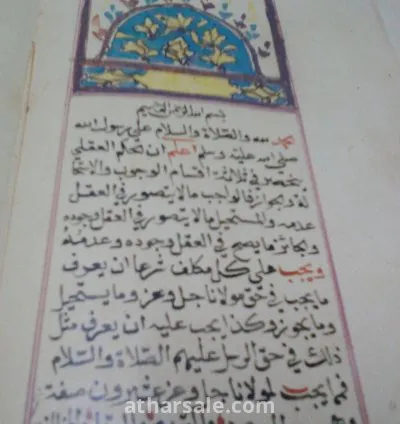 بسم الله الرحمن الرحيم
الحمد لله والصلاة والسلام على رسول الله
صلى الله عليه وسلم اعلم ان الحكم العقلي
ينحصر في ثلاثة اقسام الوجوب والاستحا
لة والجواز فالواجب ما لا يتصور في العقل
عدمه والمستحيل ما لا يتصور في العقل وجوده
والجائز ما يصح في العقل وجوده وعدمه
ويجب على كل مكلف شرعا ان يعرف
ما يجب في حق مولانا جل وعز وما يستحيل
وما يجوز وكذا يجب عليه ان يعرف مثل
ذلك في حق الرسل عليهم الصلاة والسلام
فمما يجب لمولانا جل وعز عشرون صفة
atharsale.com